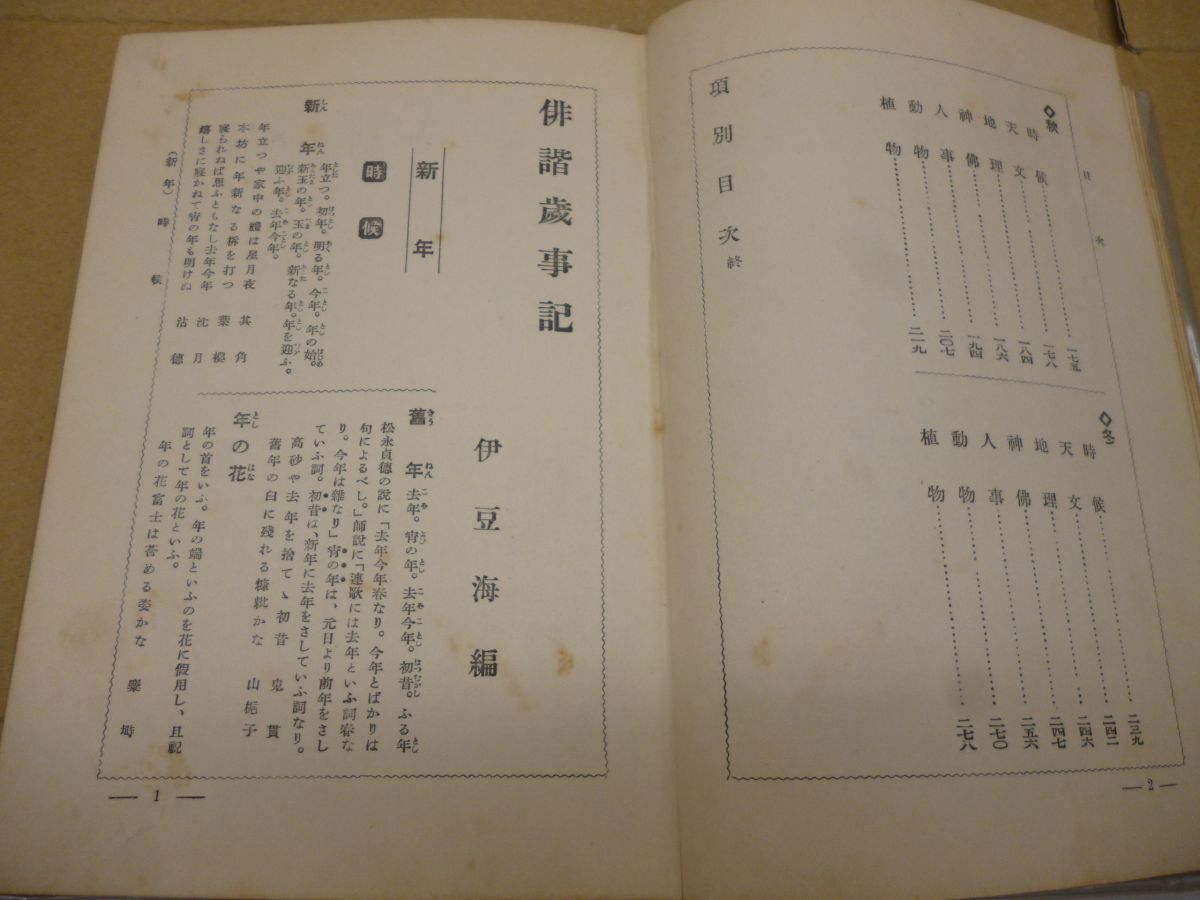 目次
◇秋
時候 一七五
天文 一七八
地理 一八四
神佛 一八六
人事 一九四
動物 二〇七
植物 二一九
◇冬
時候 二三九
天文 二四二
地理 二四六
神佛 二四七
人事 二五六
動物 二七〇
植物 二七八
項別目次終
— 2 —
俳諧歲事記
伊豆海編
新年
時候
新年
年立つ。初年。明る年。今年。年の始。
新玉の年。玉の年。新なる年。年を迎ふ。
迎ふ年。去年今年。
年立つや家中の禮は星月夜 其角
木坊に年新なる柝を打つ
寢られねば思ふともなし去年今年 沈月
嬉しさに寢かねて宵の年も明けぬ 沾德
(新年) 時候
舊年 去年。宵の年。去年今年。初昔。ふる年
松永貞德の說に「去年今年春なり。今年とばかりは
句によるべし。」師說に「連歌には去年といふ詞春な
り。今年は雜なり」宵の年は、元日より前年をさし
ていふ詞。初昔は、新年に去年をさしていふ詞なり。
高砂や去年を捨てゝ初昔 鬼貫
舊年の臼に殘れる糠粃かな 山梔子
年の花
年の首をいふ。年の端といふのを花に假用し、且祝
詞として年の花といふ。
年の花富士は莟める姿かな
— 1 —